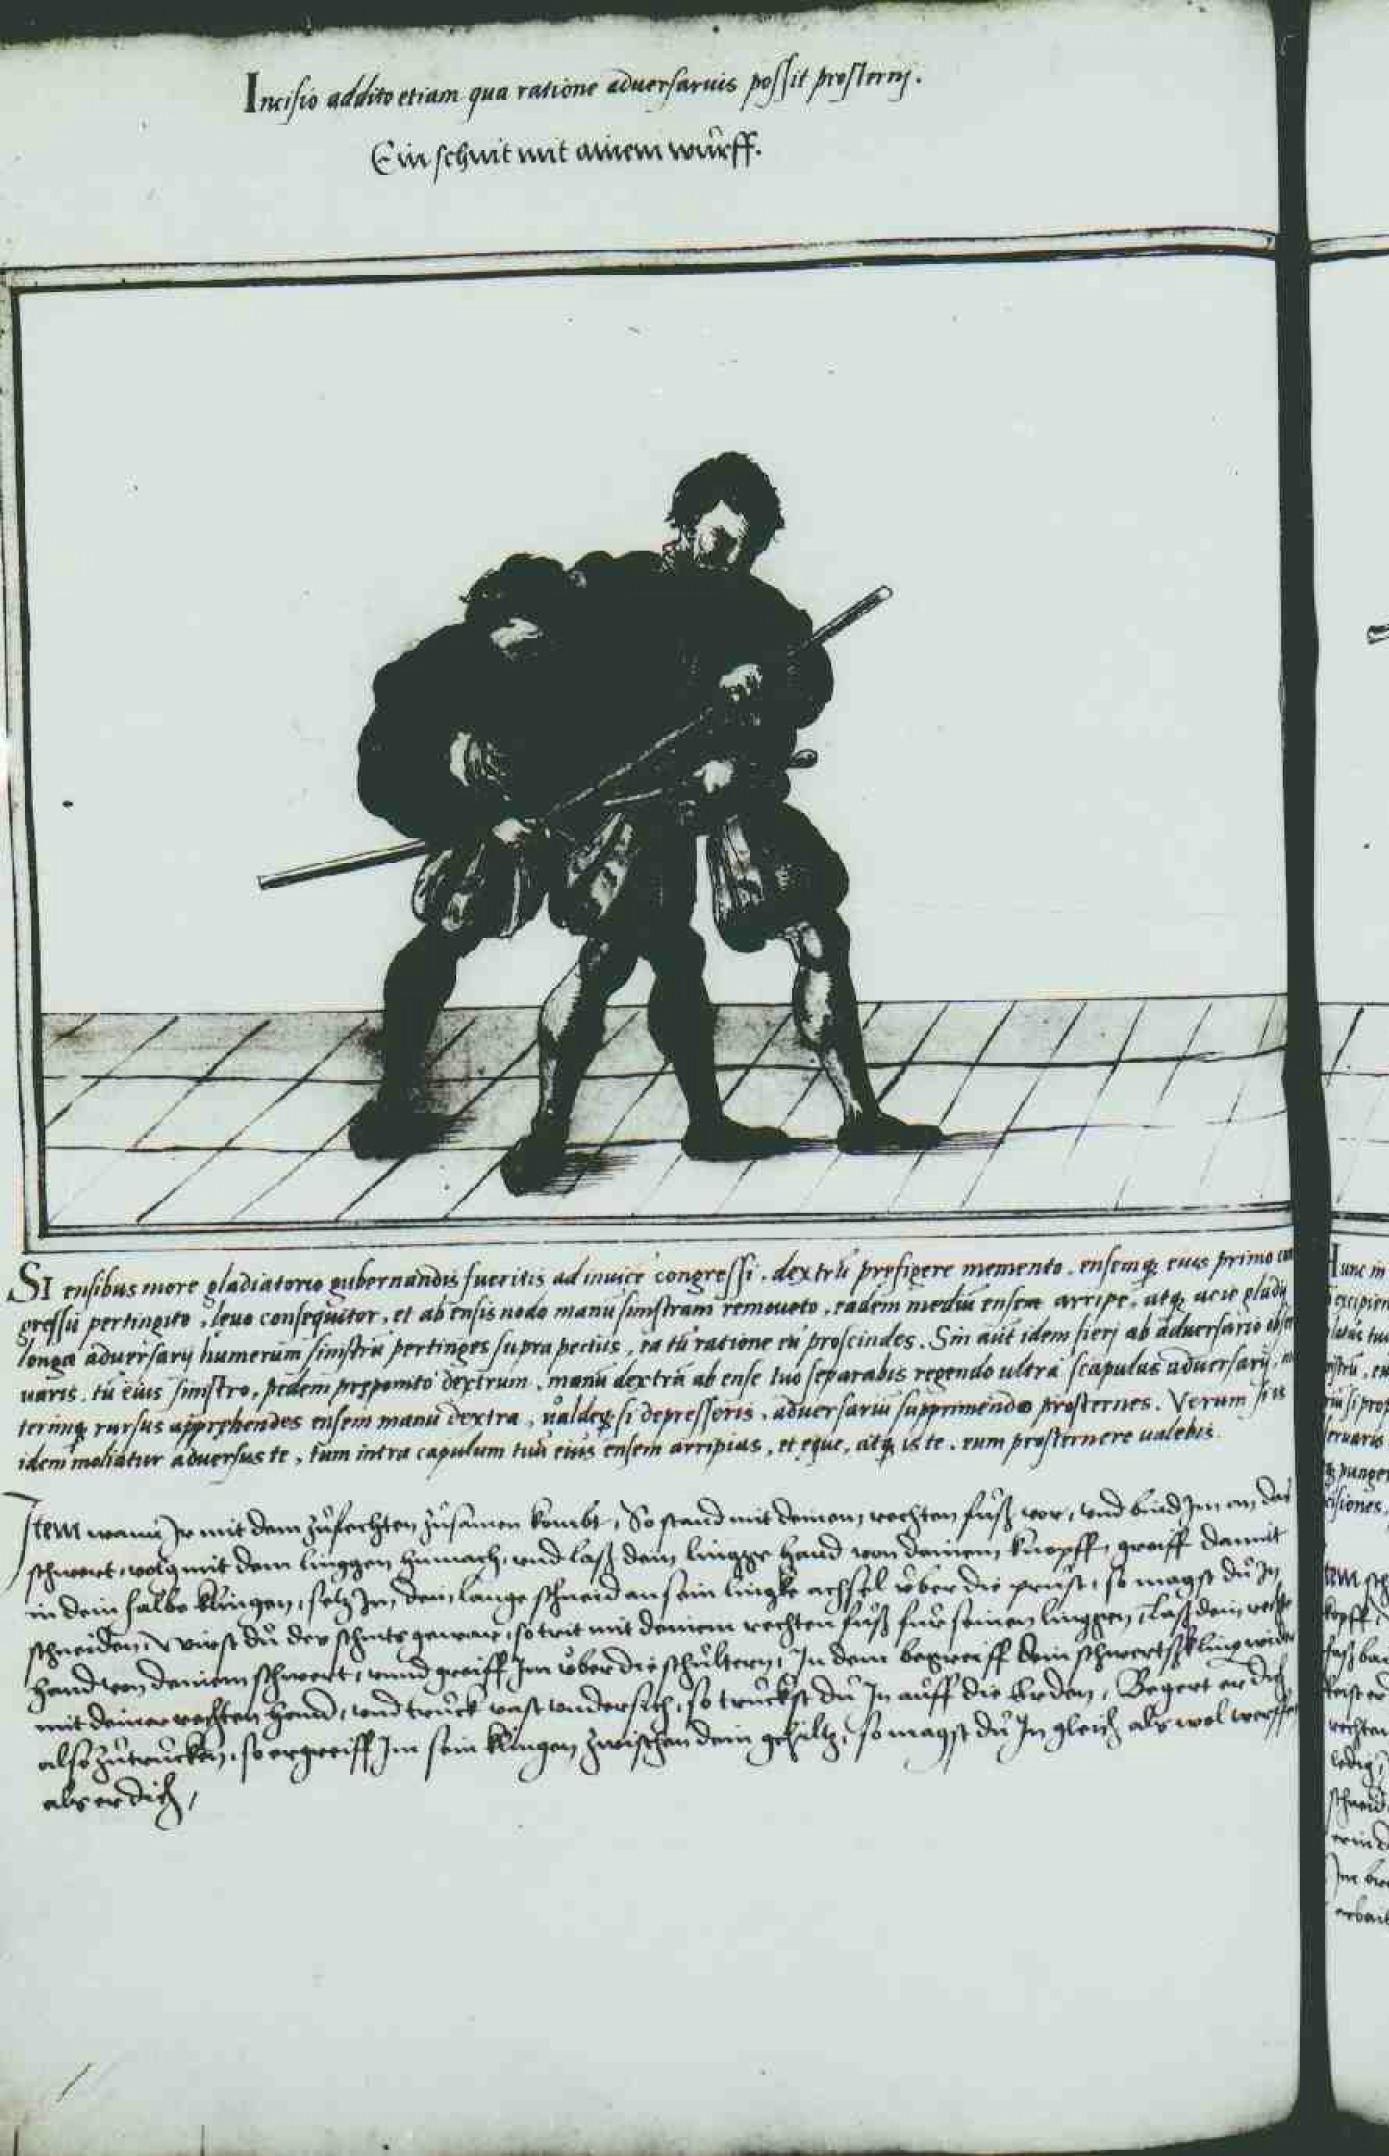 Incisio addito etiam qua ratione aduersarius possit prosternj.
Ein schnit mit ainem wurff.
SI ensibus more gladiatorio gubernandis fueritis ad inuicē congressi, dextrū prefigere memento, ensemq; eius primo con
gressu pertingito, leuo consequitor, et ab ensis nodo manū sinistram remoueto, eadem mediū ensem arripe, atq; acie gladij
longa aduersarij humerum sinistrū pertinges supra pectus, ea tū ratione eū proscindes. Sin aūt idem fierj ab aduersario obser
uaris, tū eius sinistro, pedem preponito dextrum, manū dextrā ab ense tuo separabis regendo ultra scapulas aduersarij,
terimq; rursus apprehendes ensem manu dextra, ualdeq; si depresseris, aduersariū supprimendo prosternes. Verum si is
idem moliatur aduersus te, tum intra capulum tuū eius ensem arripias, et eque, atq; is te, eum prosternere ualebis.
Item wann Ir mit dem zufechten zusamen kombt, So stand mit deinem rechten fuß vor, vnd bind Im an das
schwert, volg mit dem linggen hinnach, vnd laß dein lingge hand von deinem knopff, greiff damit
in dein halbe klingen, setz Im dein lange schneid an sein lingke achsel vber die prust, so magst du In
schneiden, Wirst du der schnits gewar, so trit mit deinem rechten fuß fur seinen linggen, laß dein rechte
hand von deinem schwert, vnnd greiff Im vber die schultern, In dem begreiff dein schwertsklingen wider
mit deiner rechten hand, vnd truck vast vndersich, so truckst du In auff die Erden, Begert er dich
also zutrucken, so ergreiff Im sein klingen zwischen dein gehiltz, so magst du In gleich als wol werffen
als er dich,